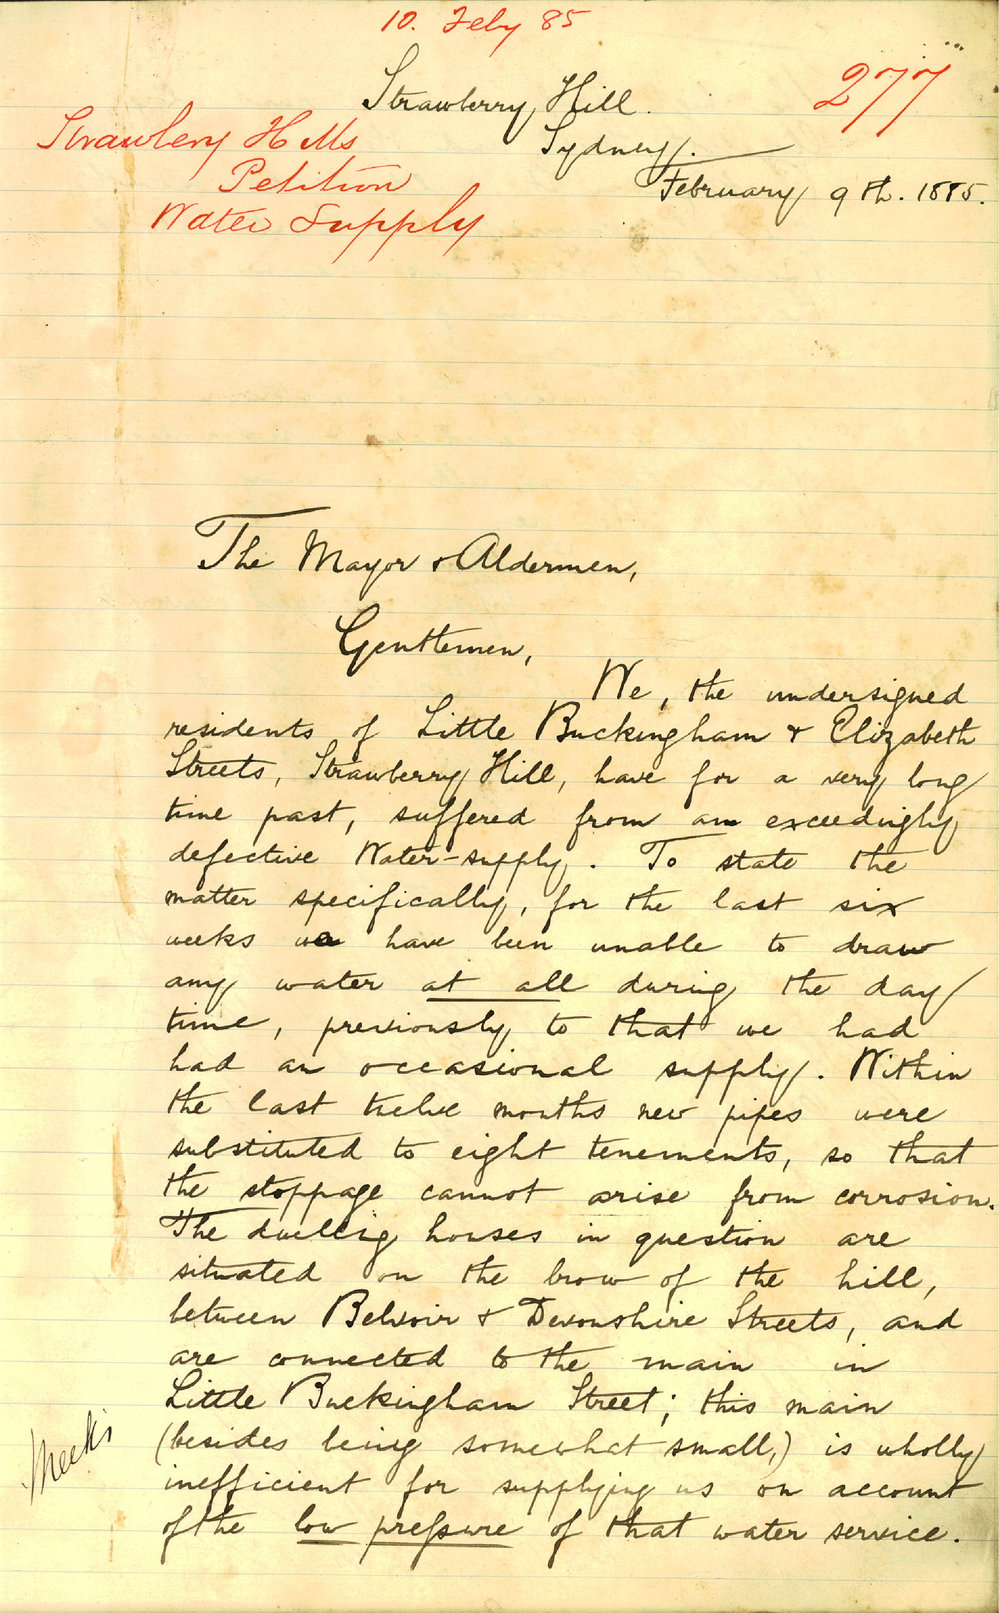 10. Feby 85
277
Strawberry Hill.
Sydney.
February 9th. 1885.
Strawbery Hills
Petition
Water Supply
The Mayor & Aldermen,
Gentlemen,
We, the undersigned
residents of Little Buckingham & Elizabeth
Streets, Strawberry Hill, have for a very long
time past, suffered from an exceedingly
defective Water-supply. To state the
matter specifically, for the last six
weeks we have been unable to draw
any water at all during the day
time, previously to that we had
had an occasional supply. Within
the last twelve months new pipes were
substituted to eight tenements, so that
the stoppage cannot arise from corrosion.
The dwellig houses in question are
situated on the brow of the hill,
between Belvoir & Devonshire Streets, and
are connected to the main in
Little Buckingham Street; this main
(besides being somewhat small,) is wholly
inefficient for supplying us on account
of the low pressure of that water service.